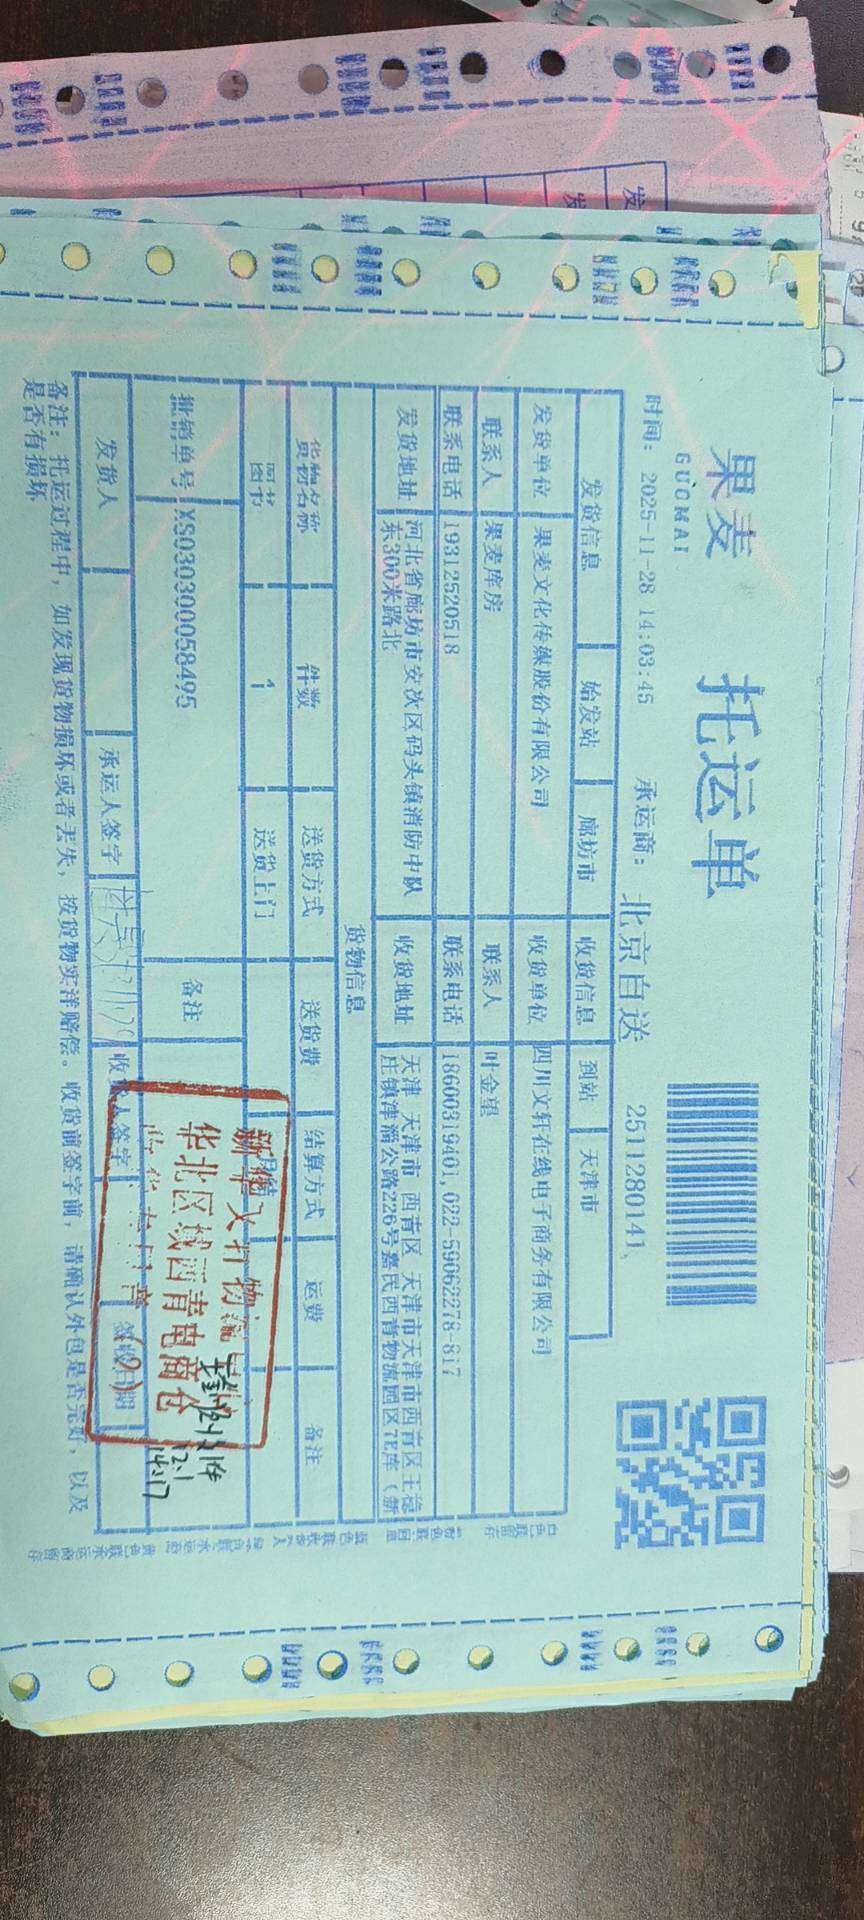 果麦
GUOMAI
托运单
时间: 2025-11-28 14:03:45 承运商: 北京自送 2511280141
发货信息 始发站 廊坊市 收货信息 到站 天津市
发货单位 果麦文化传媒股份有限公司 收货单位 四川文轩在线电子商务有限公司
联系人 果麦库房 联系人 叶金望
联系电话 19312520518 联系电话 18600319401,022-59062278-817
发货地址 河北省廊坊市安次区码头镇消防中队东300米路北 收货地址 天津 天津市 西青区 天津市天津市西青区王稳庄镇津淄公路226号嘉民西青物流园区7E库(新
货物信息
货物名称 件数 送货方式 送货费 结算方式 运费 备注
图书 1 送货上门
批销单号 XS030300058495 备注
发货人 承运人签字 收货人签字 签收日期
备注: 托运过程中, 如发现货物损坏或者丢失, 按货物实洋赔偿。收货前签字前, 请确认外包是否完好, 以及
是否有损坏
新华文轩物流
华北区域西青电商仓
(9)
12.1
14:17